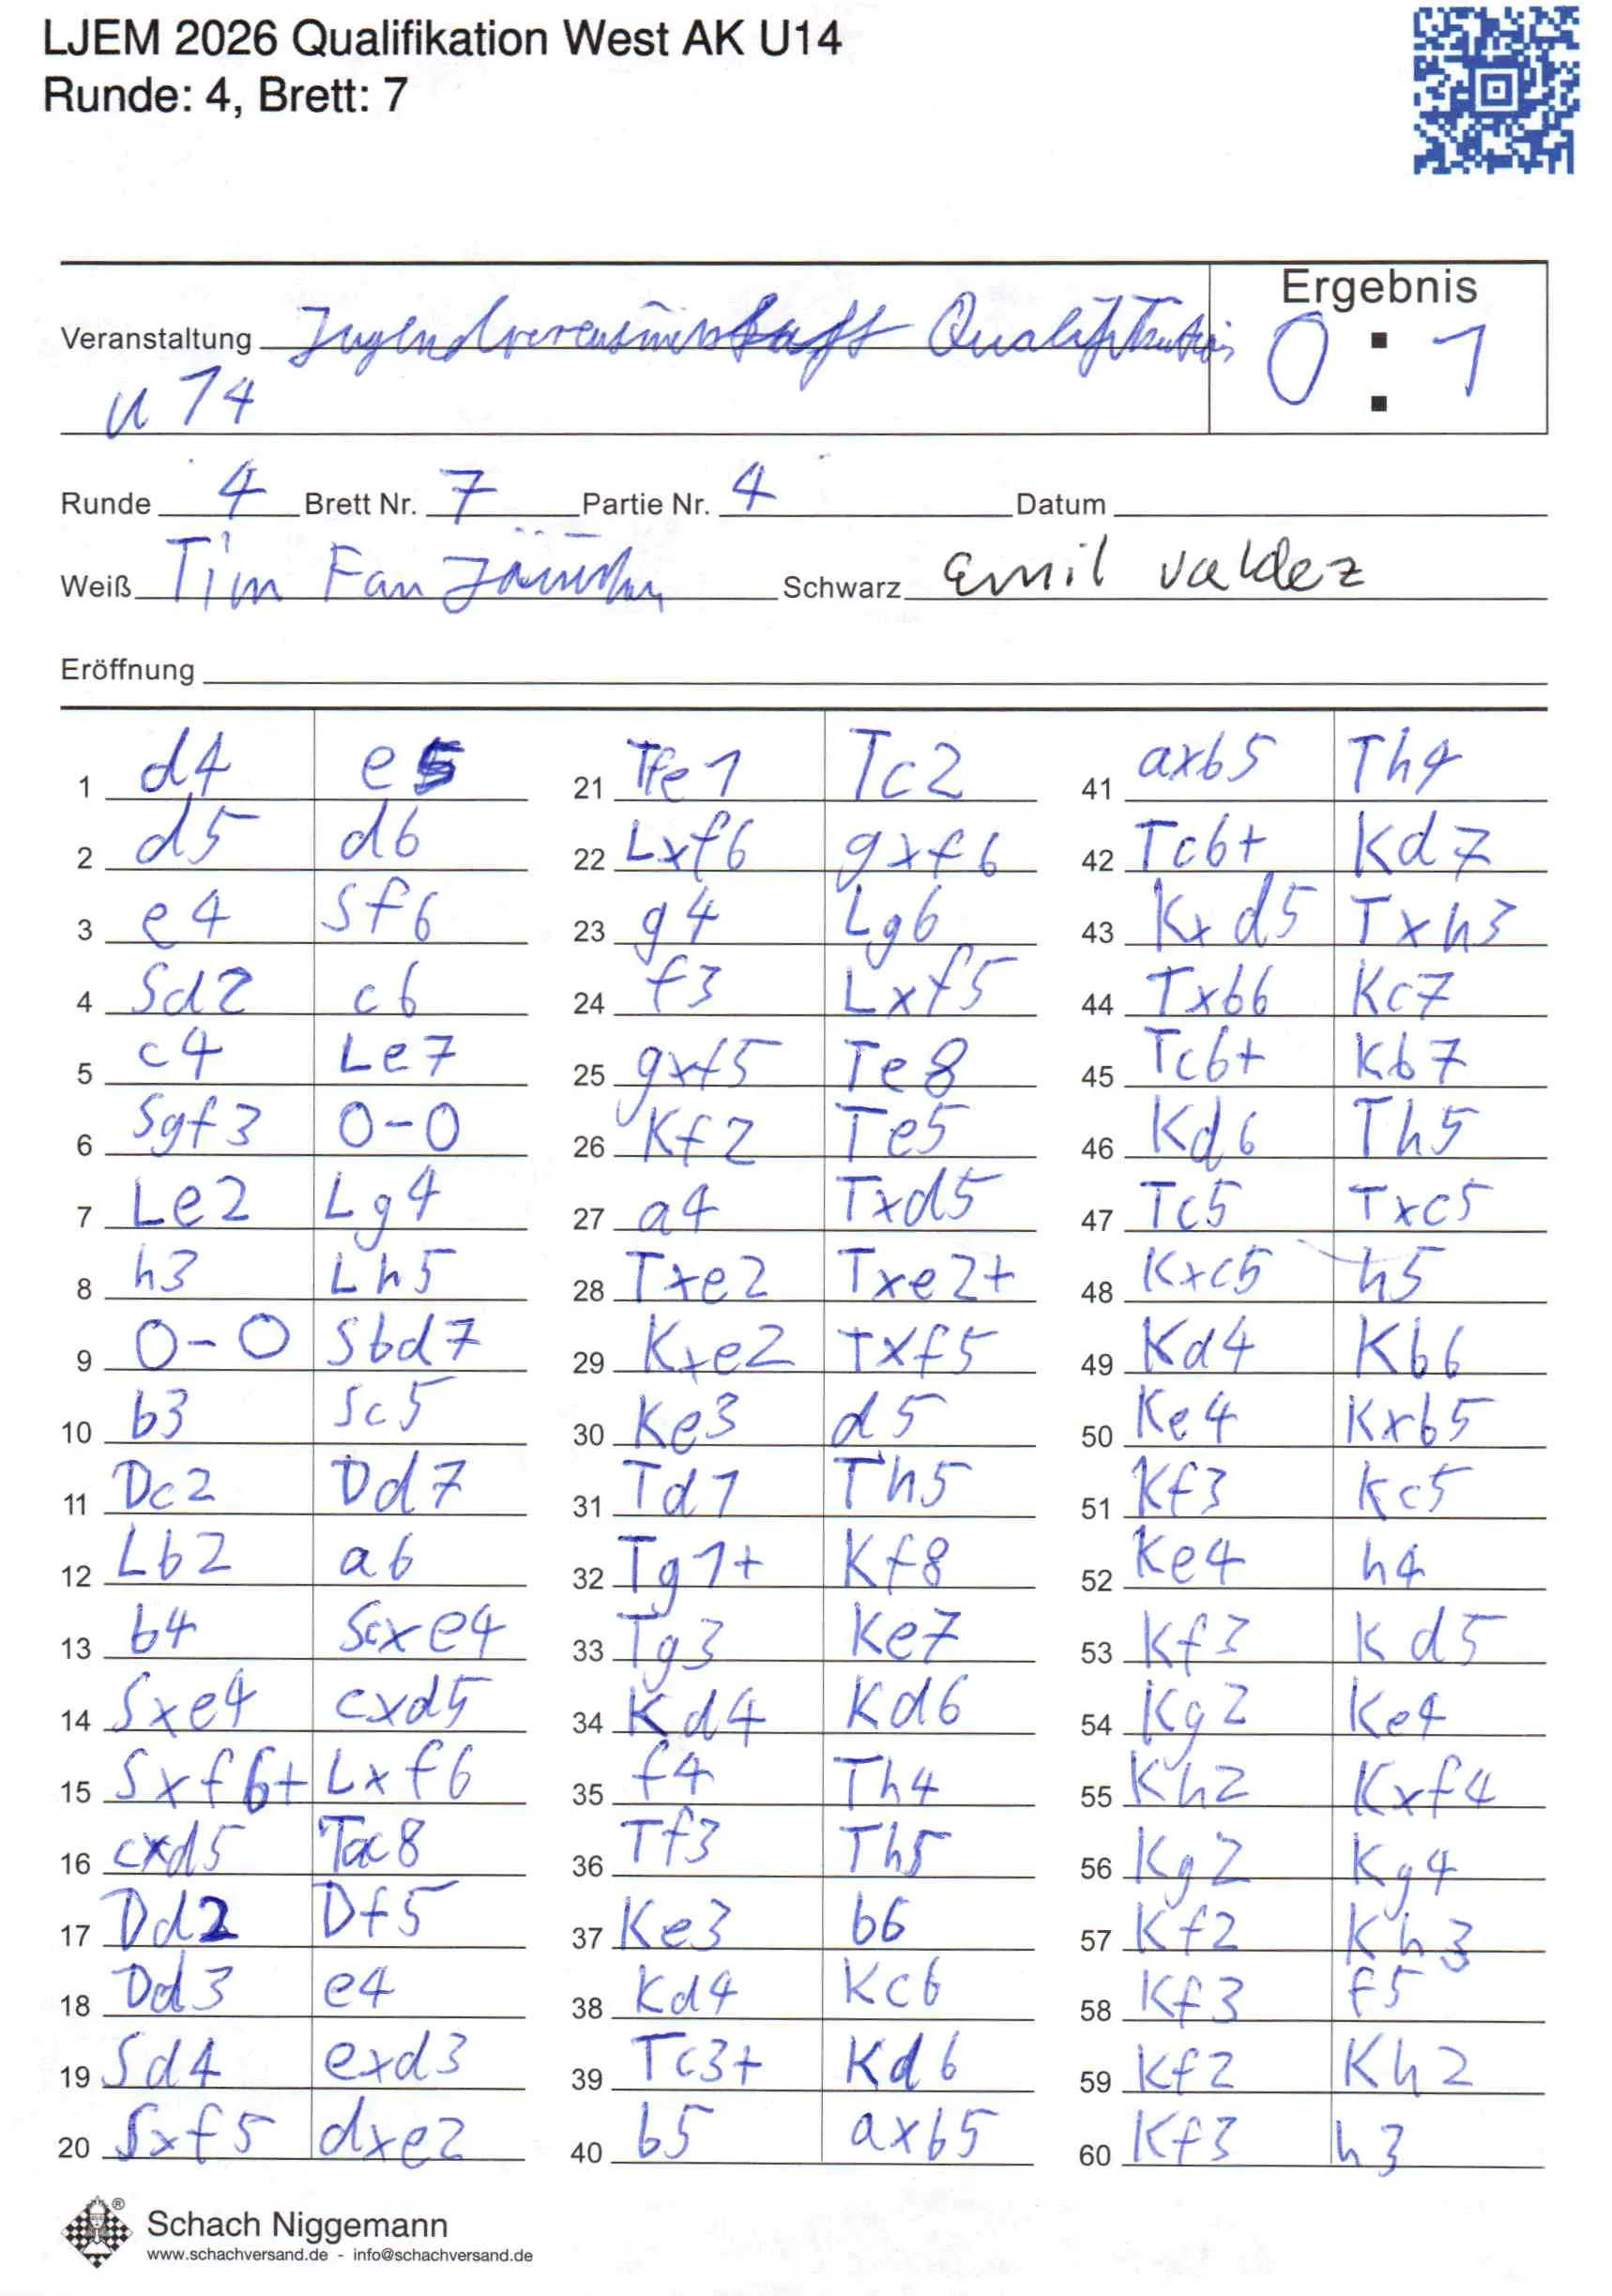 LJEM 2026 Qualifikation West AK U14
Runde: 4, Brett: 7
Ergebnis
Veranstaltung Qualifikation
0 : 1
U 14
Runde 4 Brett Nr. 7 Partie Nr. 4 Datum
Weiß Tim Fan Schwarz Emil Valdez
Eröffnung
1 d4 e5
2 d5 d6
3 e4 Sf6
4 Sd2 c6
5 c4 Le7
6 Sgf3 0-0
7 Le2 Lg4
8 h3 Lh5
9 0-0 Sbd7
10 b3 Sc5
11 Dc2 Dd7
12 Lb2 a6
13 b4 Scxe4
14 Sxe4 cxd5
15 Sxf6+ Lxf6
16 cxd5 Tac8
17 Dd2 Df5
18 Dd3 e4
19 Sd4 exd3
20 Sxf5 dxe2
21 Tfe1 Tc2
22 Lxf6 gxf6
23 g4 Lg6
24 f3 Lxf5
25 gxf5 Te8
26 Kf2 Te5
27 a4 Txd5
28 Txe2 Txe2+
29 Kxe2 Txf5
30 Ke3 d5
31 Td1 Th5
32 Tg1+ Kf8
33 Tg3 Ke7
34 Kd4 Kd6
35 f4 Th4
36 Tf3 Th5
37 Ke3 b6
38 Kd4 Kc6
39 Tc3+ Kd6
40 b5 axb5
41 axb5 Th4
42 Tc6+ Kd7
43 Kxd5 Txh3
44 Txb6 Kc7
45 Tc6+ Kb7
46 Kd6 Th5
47 Tc5 Txc5
48 Kxc5 h5
49 Kd4 Kb6
50 Ke4 Kxb5
51 Kf3 Kc5
52 Ke4 h4
53 Kf3 Kd5
54 Kg2 Ke4
55 Kh2 Kxf4
56 Kg2 Kg4
57 Kf2 Kh3
58 Kf3 f5
59 Kf2 Kh2
60 Kf3 h3
Schach Niggemann
www.schachversand.de - info@schachversand.de